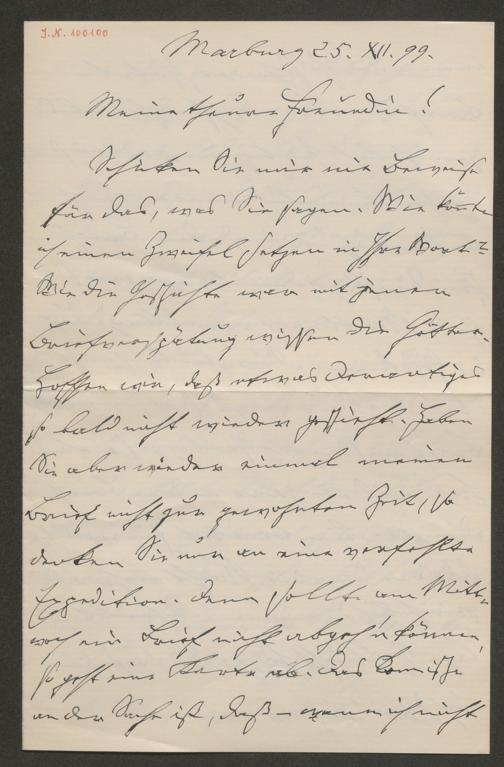 J.N. 100100
Marburg 25. XII. 99.
Meine theure Freundin!
Schicken Sie mir nie Beweise
für das, was Sie sagen. Wie könnte
ich einen Zweifel setzen in Ihr Wort?
Wie die Geschichte war mit jenen
Briefverspätung wissen die Götter.
Hoffen wir, daß etwas Derartiges
so bald nicht wieder geschieht. Haben
Sie aber wieder einmal meinen
Brief nicht zur gewohnten Zeit, so
denken Sie nur an eine verfehlte
Expedition. Denn sollte am Mitt-
woch ein Brief nicht abgeh'n können,
so geht eine Karte ab. Das Komische
an der Sache ist, daß – wenn ich nicht